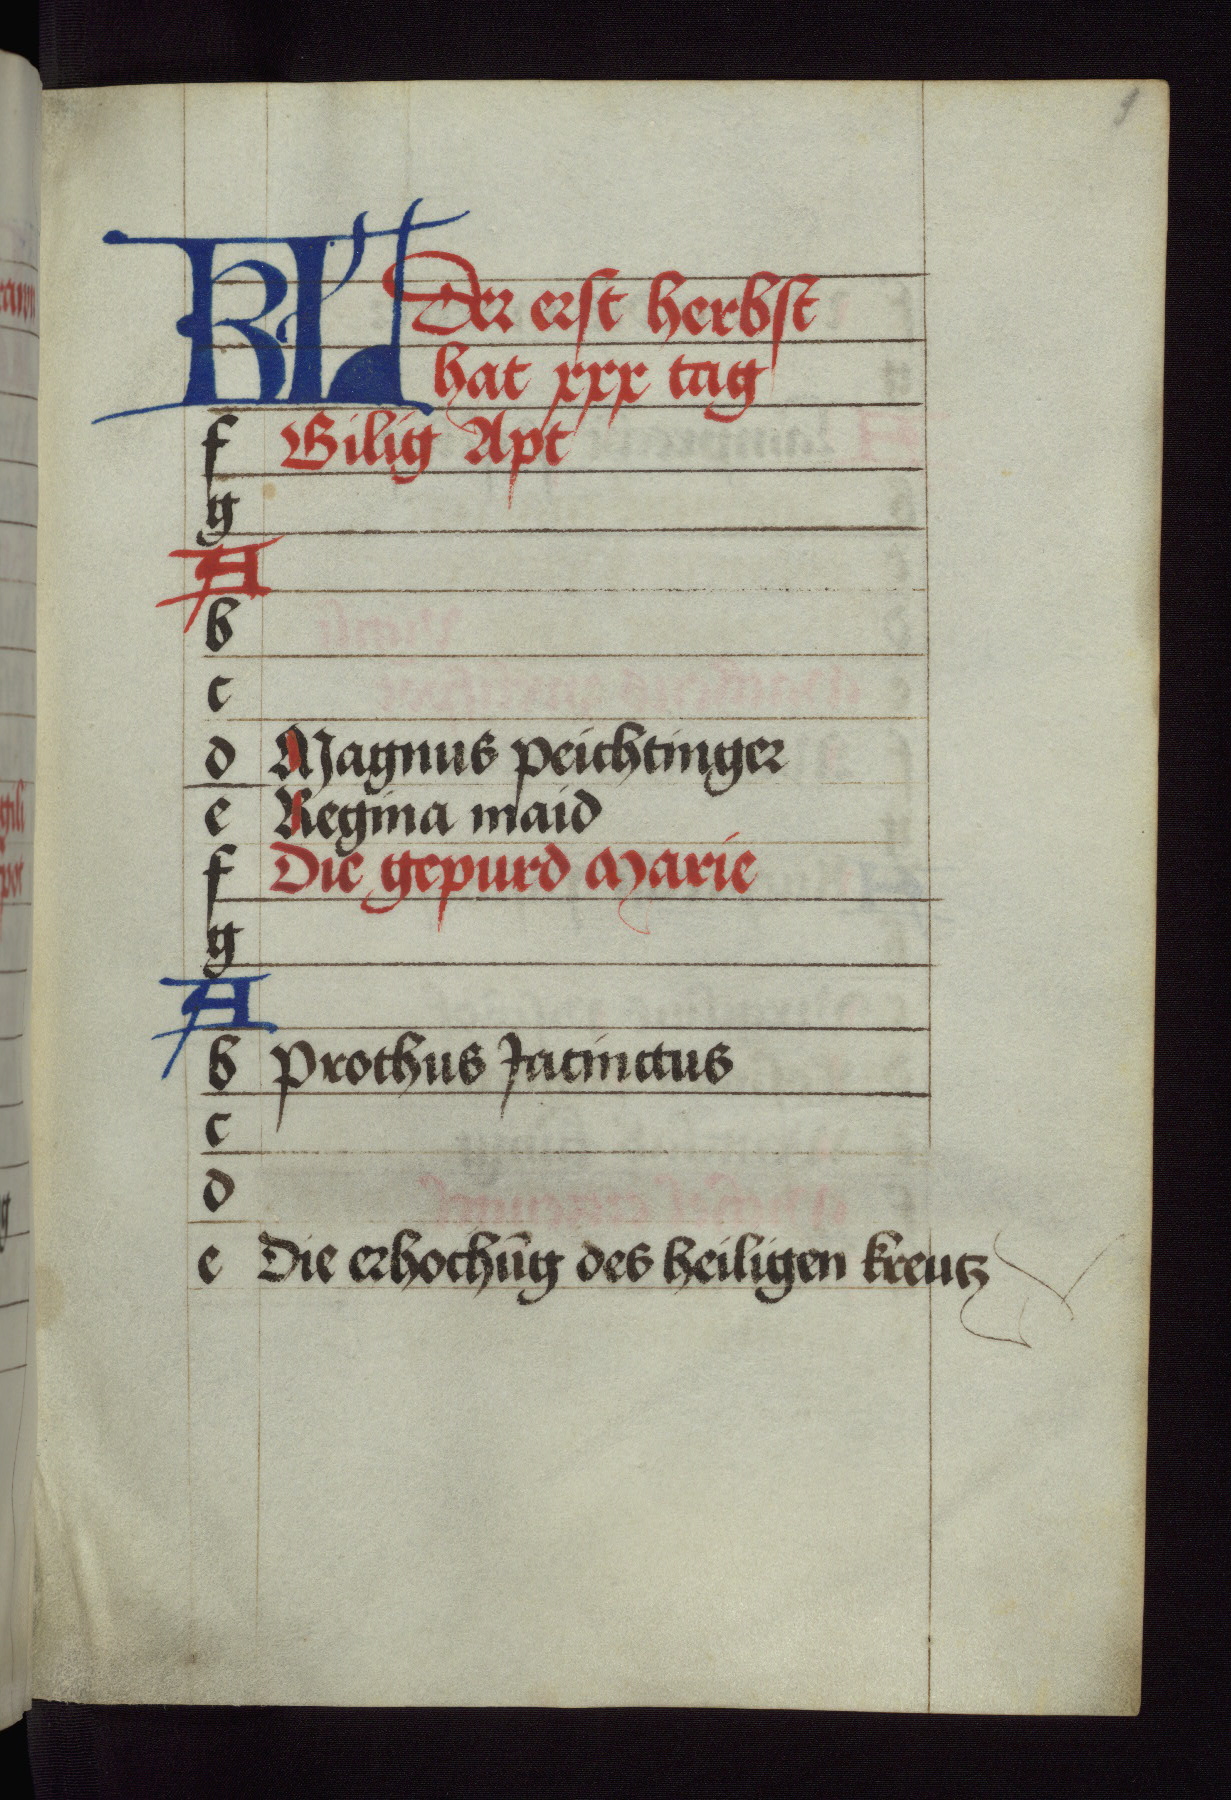 9
KL Der erst herbst
hat xxx tag
f Gilig Apt
g
A
b
c
d Magnus peichtinger
e Regina maid
f Die gepurd Marie
g
A
b Prothus Jacinctus
c
d
e Die erhochūg des heiligen kreutz